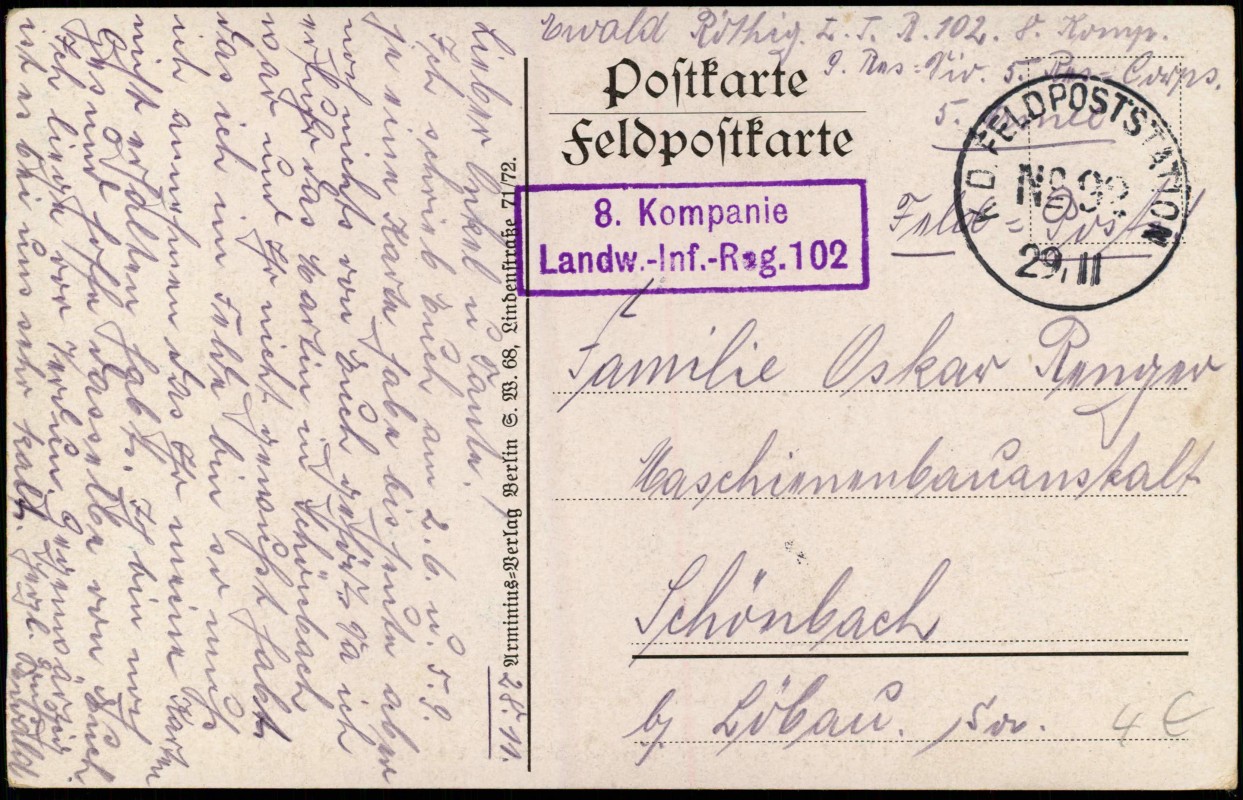 Ewald Röthig. L. I. R. 102. 8. Komp.
9. Res.=Div. 5. Res.=Corps.
5. Armee
Feld=Post
Postkarte
Feldpostkarte
8. Kompanie
Landw.-Inf.-Reg.102
K.D. FELDPOSTSTATION
No 92
29.11
Familie Oskar Renger
Maschienenbauanstalt
Schönbach
by Löbau. Sa.
4 €
Arminius=Verlag Berlin S. W. 68, Lindenstraße 71/72.
28. 11.
Lieber Onkel u Tante!
Ich schrieb Euch am 2.6. u. 5.9.
je eine Karte habe bis heute aber
noch nichts von Euch gehört. Da ich
erfuhr das Martin in Schönbach
war und Ihr nicht gewußt habt
das ich im Felde bin so muß
ich annehmen das Ihr meine Karten
nicht erhalten habt. Ich bin noch
Gesund hoffe dasselbe von Euch
Ich liege vor Verdun Gegenwärtig
ist es bei uns sehr kalt. Herzl. Gruß
Ewald